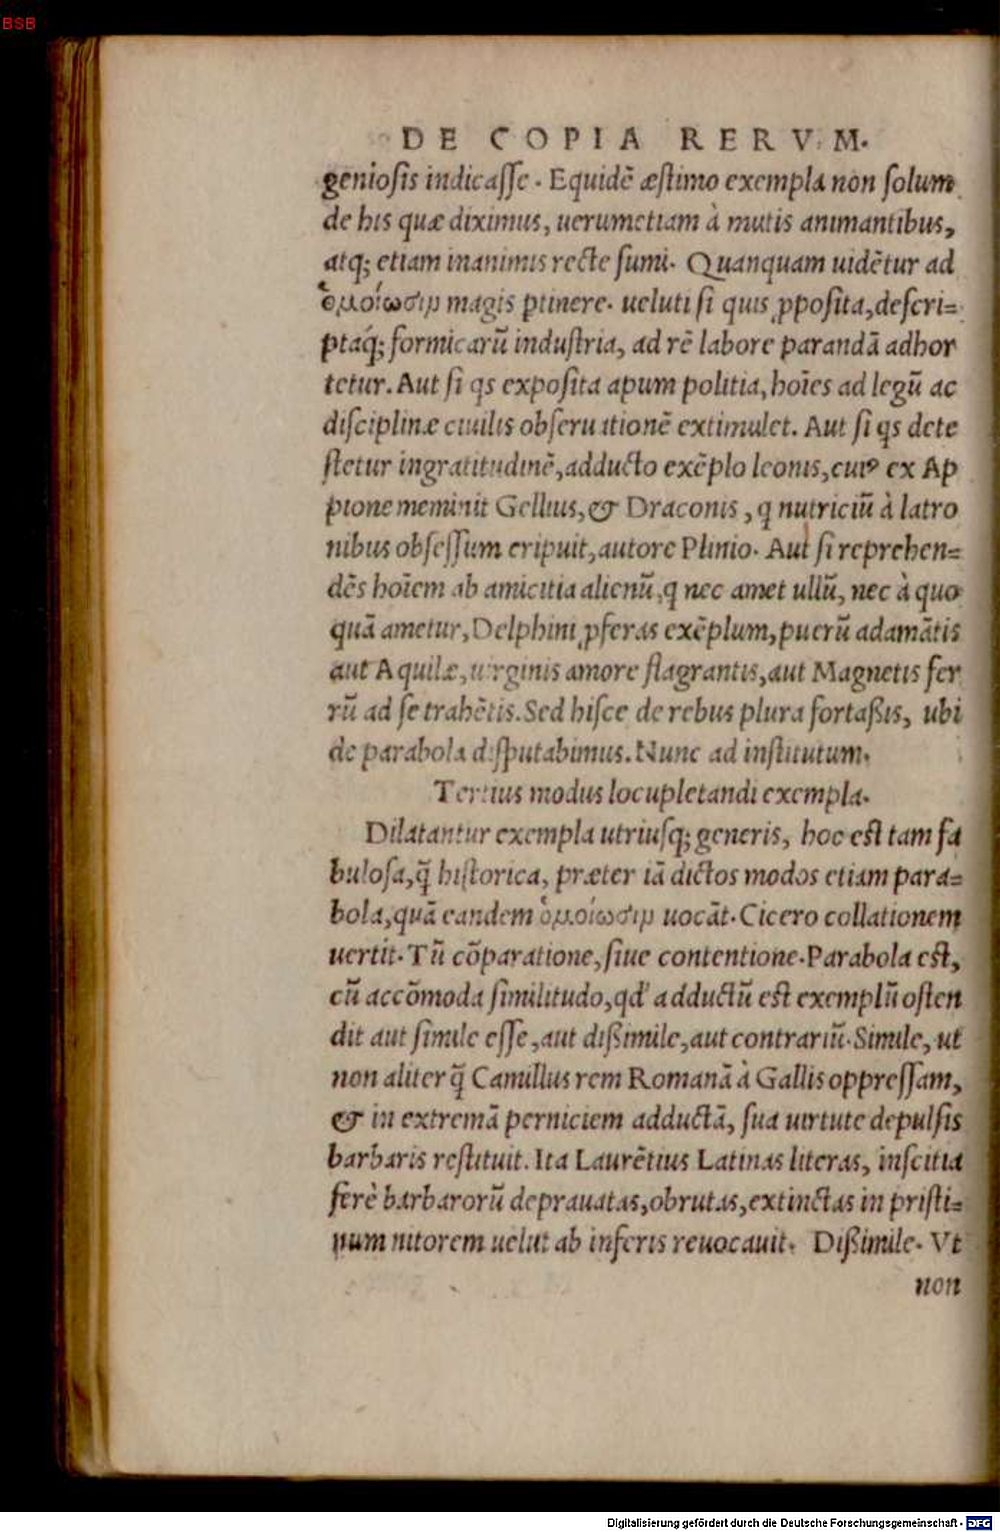 BSB
DE COPIA RERVM.
geniosis indicasse. Equidẽ æstimo exempla non solum
de his quæ diximus, uerumetiam à mutis animantibus,
atq; etiam inanimis recte sumi. Quanquam uidẽtur ad
ὁμοίωσιμ magis ꝑtinere. ueluti si quis ꝓposita, descri=
ptaq́; formicarũ industria, ad rẽ labore parandã adhor
tetur. Aut si qs exposita apum politia, hoĩes ad legũ ac
disciplinæ ciuilis obseruationẽ extimulet. Aut si qs dete
stetur ingratitudinẽ, adducto exẽplo leonis, cuiꝰ ex Ap
pione meminit Gellius, & Draconis, q nutriciũ à latro
nibus obsessum eripuit, autore Plinio. Aut si reprehen=
dẽs hoĩem ab amicitia alienũ, q nec amet ullũ, nec à quo
quã ametur, Delphini ꝓferas exẽplum, puerũ adamãtis
aut Aquilæ, uirginis amore flagrantis, aut Magnetis fer
rũ ad se trahẽtis. Sed hisce de rebus plura fortaßis, ubi
de parabola disputabimus. Nunc ad institutum.
Tertius modus locupletandi exempla.
Dilatantur exempla utriusq; generis, hoc est tam fa
bulosa, q̃ historica, præter iã dictos modos etiam para=
bola, quã eandem ὁμοίωσιμ uocãt. Cicero collationem
uertit. Tũ cõparatione, siue contentione. Parabola est,
cũ accõmoda similitudo, qd' adductũ est exemplũ osten
dit aut simile esse, aut dißimile, aut contrariũ. Simile, ut
non aliter q̃ Camillus rem Romanã à Gallis oppressam,
& in extremã perniciem adductã, sua uirtute depulsis
barbaris restituit. Ita Laurẽtius Latinas literas, inscitia
ferè barbarorũ deprauatas, obrutas, extinctas in pristi=
num nitorem uelut ab inferis reuocauit. Dißimile. Vt
non
Digitalisierung gefördert durch die Deutsche Forschungsgemeinschaft - DFG